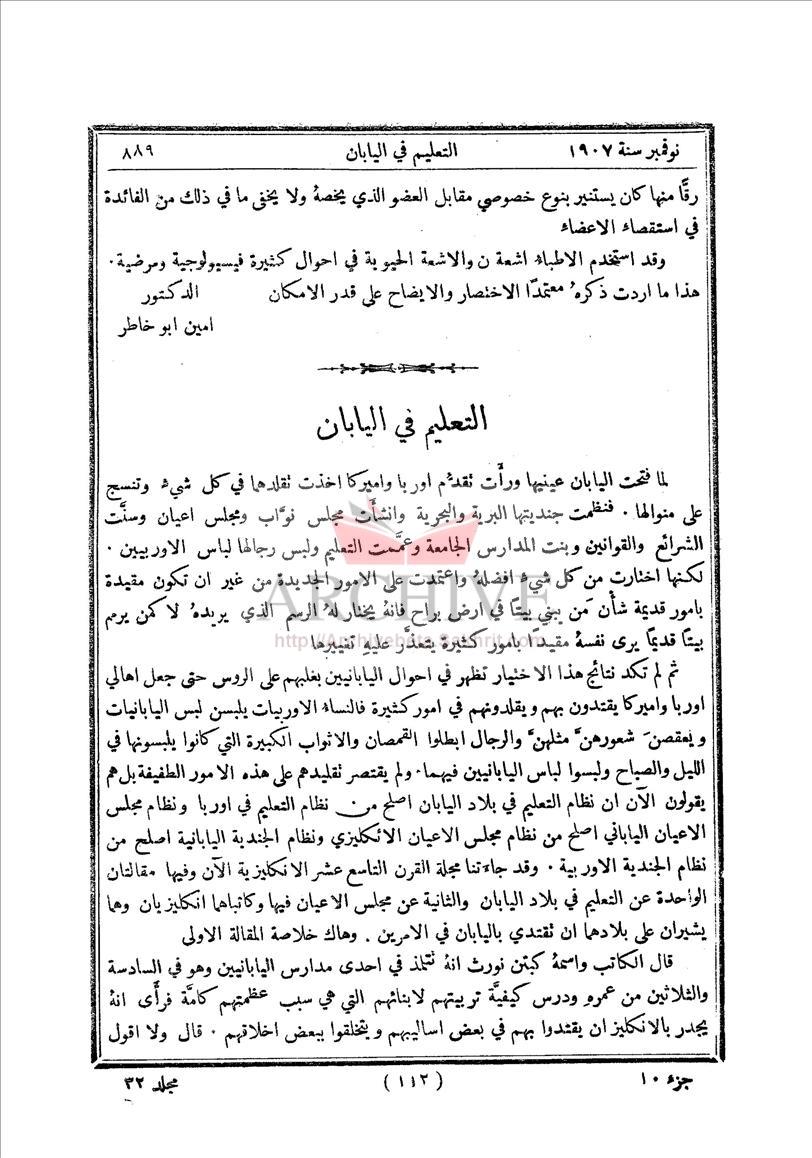 نوفمبر سنة ١٩٠٧ التعليم في اليابان ٨٨٩
رقًّا منها كان يستنير بنوع خصوصي مقابل العضو الذي يخصهُ ولا يخفى ما في ذلك من الفائدة
في استقصاء الاعضاء
وقد استخدم الاطباء اشعة ن والاشعة الحيوية في احوال كثيرة فيسيولوجية ومرضية ٠
هذا ما اردت ذكرهُ معتمدًا الاختصار والايضاح على قدر الامكان الدكتور
امين ابو خاطر
التعليم في اليابان
لما فتحت اليابان عينيها ورأَت تقدُّم اوربا واميركا اخذت تقلدهما في كل شيء وتنسج
على منوالها ٠ فنظمت جنديتها البرية والبحرية وانشأَت مجلس نوَّاب ومجلس اعيان وسنَّت
الشرائع والقوانين وبنت المدارس الجامعة وعمَّمت التعليم ولبس رجالها لباس الاوربيين ٠
لكنها اختارت من كل شيء افضلهُ واعتمدت على الامور الجديدة من غير ان تكون مقيدة
بامور قديمة شأْن مَن يبني بيتًا في ارض براح فانهُ يختار لهُ الرسم الذي يريدهُ لا كمن يرمم
بيتًا قديمًا يرى نفسهُ مقيدًا بامور كثيرة يتعذَّر عليهِ تغييرها
ARCHIVE
http://Archivebeta.Sakhrit.com
ثم لم تكد نتائج هذا الاختيار تظهر في احوال اليابانيين بغلبهم على الروس حتى جعل اهالي
اوربا واميركا يقتدون بهم ويقلدونهم في امور كثيرة فالنساء الاوربيات يلبسن لبس اليابانيات
ويعقصنَ شعورهنَّ مثلهنَّ والرجال ابطلوا القمصان والاثواب الكبيرة التي كانوا يلبسونها في
الليل والصباح ولبسوا لباس اليابانيين فيهما ٠ ولم يقتصر تقليدهم على هذه الامور الطفيفة بل هم
يقولون الآن ان نظام التعليم في بلاد اليابان اصلح من نظام التعليم في اوربا ونظام مجلس
الاعيان الياباني اصلح من نظام مجلس الاعيان الانكليزي ونظام الجندية اليابانية اصلح من
نظام الجندية الاوربية ٠ وقد جاءتنا مجلة القرن التاسع عشر الانكليزية الآن وفيها مقالتان
الواحدة عن التعليم في بلاد اليابان والثانية عن مجلس الاعيان فيها وكاتباهما انكليزيان وهما
يشيران على بلادهما ان تقتدي باليابان في الامرين ٠ وهاك خلاصة المقالة الاولى
قال الكاتب واسمهُ كبتن نورث انهُ تتلمذ في احدى مدارس اليابانيين وهو في السادسة
والثلاثين من عمره ودرس كيفيَّة تربيتهم لابنائهم التي هي سبب عظمتهم كامَّة فرأى انهُ
يجدر بالانكليز ان يقتدوا بهم في بعض اساليبهم ويتخلقوا ببعض اخلاقهم ٠ قال ولا اقول
جزء ١٠ (١١٢) مجلد ٣٢